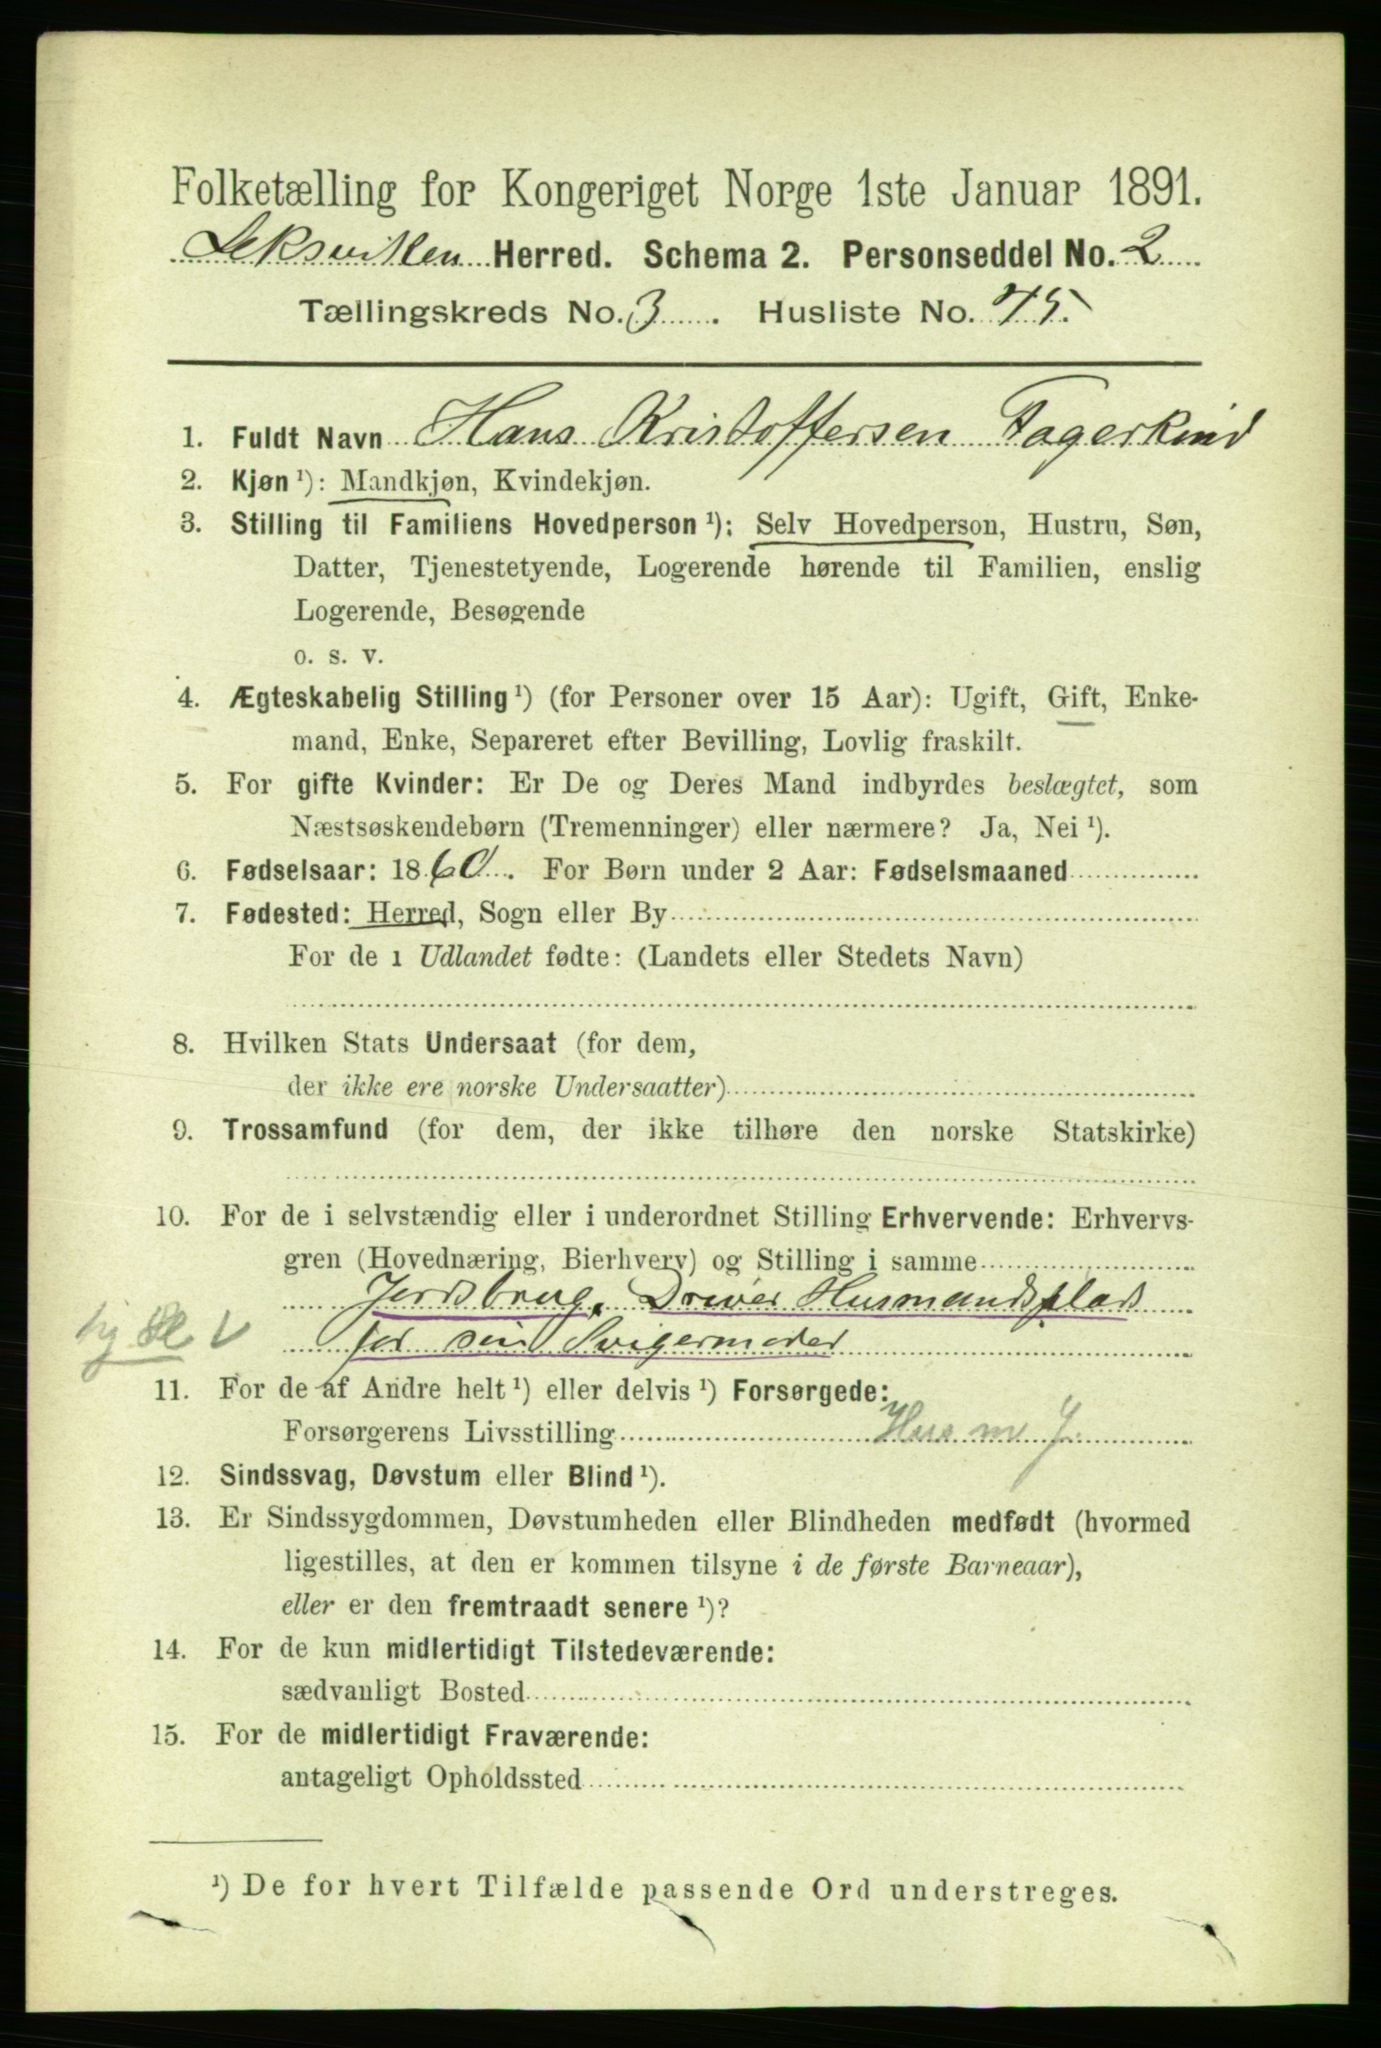 Folketælling for Kongeriget Norge 1ste Januar 1891.
Leksviken Herred. Schema 2. Personseddel No. 2
Tællingskreds No. 3. Husliste No. 45.
1. Fuldt Navn Hans Kristoffersen Fagerlind
2. Kjøn ¹): Mandkjøn, Kvindekjøn.
3. Stilling til Familiens Hovedperson ¹): Selv Hovedperson, Hustru, Søn,
Datter, Tjenestetyende, Logerende hørende til Familien, enslig
Logerende, Besøgende
o. s. v.
4. Ægteskabelig Stilling ¹) (for Personer over 15 Aar): Ugift, Gift, Enke-
mand, Enke, Separeret efter Bevilling, Lovlig fraskilt.
5. For gifte Kvinder: Er De og Deres Mand indbyrdes beslægtet, som
Næstsøskendebørn (Tremenninger) eller nærmere? Ja, Nei ¹).
6. Fødselsaar: 1860. For Børn under 2 Aar: Fødselsmaaned
7. Fødested: Herred, Sogn eller By
For de i Udlandet fødte: (Landets eller Stedets Navn)
8. Hvilken Stats Undersaat (for dem,
der ikke ere norske Undersaatter)
9. Trossamfund (for dem, der ikke tilhøre den norske Statskirke)
10. For de i selvstændig eller i underordnet Stilling Erhvervende: Erhvervs-
gren (Hovednæring, Bierhverv) og Stilling i samme
Jordbrug, Driver Husmandsplads
for sin Svigermoder
11. For de af Andre helt ¹) eller delvis ¹) Forsørgede:
Forsørgerens Livsstilling Husm. J.
12. Sindssvag, Døvstum eller Blind ¹).
13. Er Sindssygdommen, Døvstumheden eller Blindheden medfødt (hvormed
ligestilles, at den er kommen tilsyne i de første Barneaar),
eller er den fremtraadt senere ¹)?
14. For de kun midlertidigt Tilstedeværende:
sædvanligt Bosted
15. For de midlertidigt Fraværende:
antageligt Opholdssted
¹) De for hvert Tilfælde passende Ord understreges.